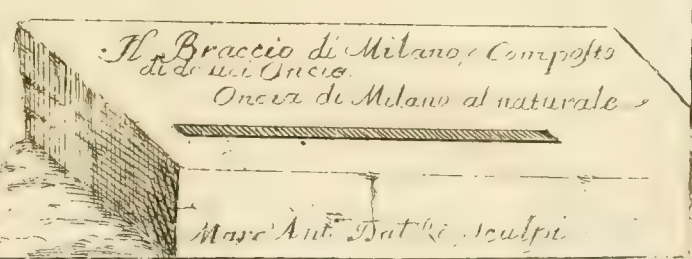 Il Braccio di Milano, e Composto
di dodici Oncie.
Oncia di Milano al naturale
Marc' Ant. Dal Re sculpi